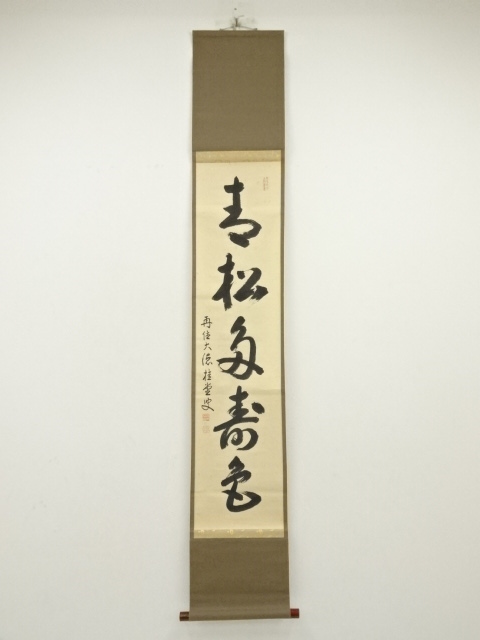 青松多寿色
再住大徳桂堂叟